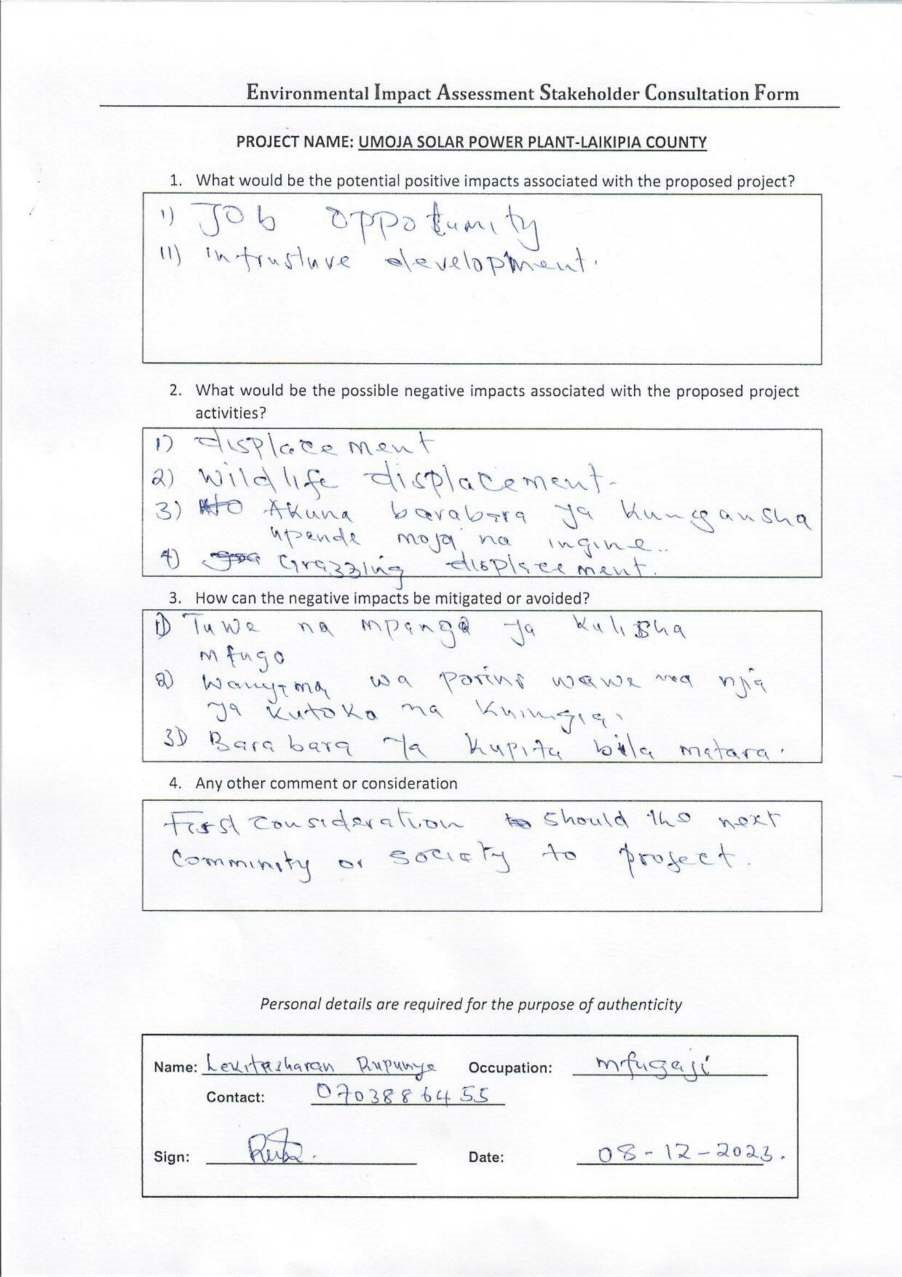 Environmental Impact Assessment Stakeholder Consultation Form
PROJECT NAME: UMOJA SOLAR POWER PLANT-LAIKIPIA COUNTY
1. What would be the potential positive impacts associated with the proposed project?
1) Job oppotunity
11) infrustuve development.
2. What would be the possible negative impacts associated with the proposed project
activities?
1) displacement
2) Wildlife displacement-
3) Akuna barabara ya kungansha
upande moja na ingine..
4) Grazzing displacement.
3. How can the negative impacts be mitigated or avoided?
1) Tuwe na mpanga ya kulisha
mfugo
2) Wanyama wa porini wawe na njia
ya kutoka na kuingia.
3) Barabara ya kupita bila matara.
4. Any other comment or consideration
First consideration should the next
comminity or society to project.
Personal details are required for the purpose of authenticity
Name: Lekitasharan Rupunye Occupation: mfugaji
Contact: 0703886455
Sign: Date: 08-12-2023.